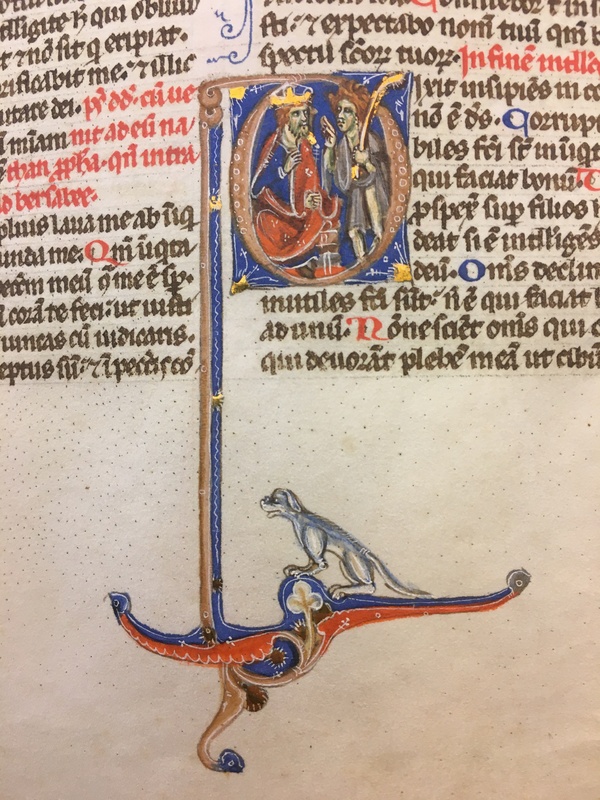 lligite h̄ qui obliui
t ⁊ nō sit q eripiat.
rificabit me. ⁊ illic
utare dei. p̄s dd̄. cū ue
m mīam nit ad eū na
than p̄pha. qn̄ intra
ad bersabee.
plius laua me ab iniq
unda me. Qm̄ iniqta
meū q̄ me ē sp̄.
t corā te feci. ut iusti
uincas cū iudicaris.
eptus sū. ⁊ ī pecc̄is cō
sti. ⁊ expectabo nom̄ tuū qm̄ b
spectu sc̄or tuor. In finē intlle
ixit insipiēs in co
nō ē ds̄. Corrupt
biles fc̄i st̄ in iniqt
qui faciat bonū. D
pspex̄ sup filios h
deat si ē intlligēs
deū. Om̄s declin
inutiles fc̄i sūt. n̄ ē qui faciat b
ad unū. Nōne sciēt om̄s qui o
qui deuorāt plebē meā ut cibū